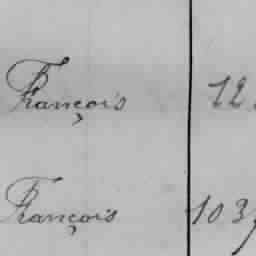 François 12
François 103